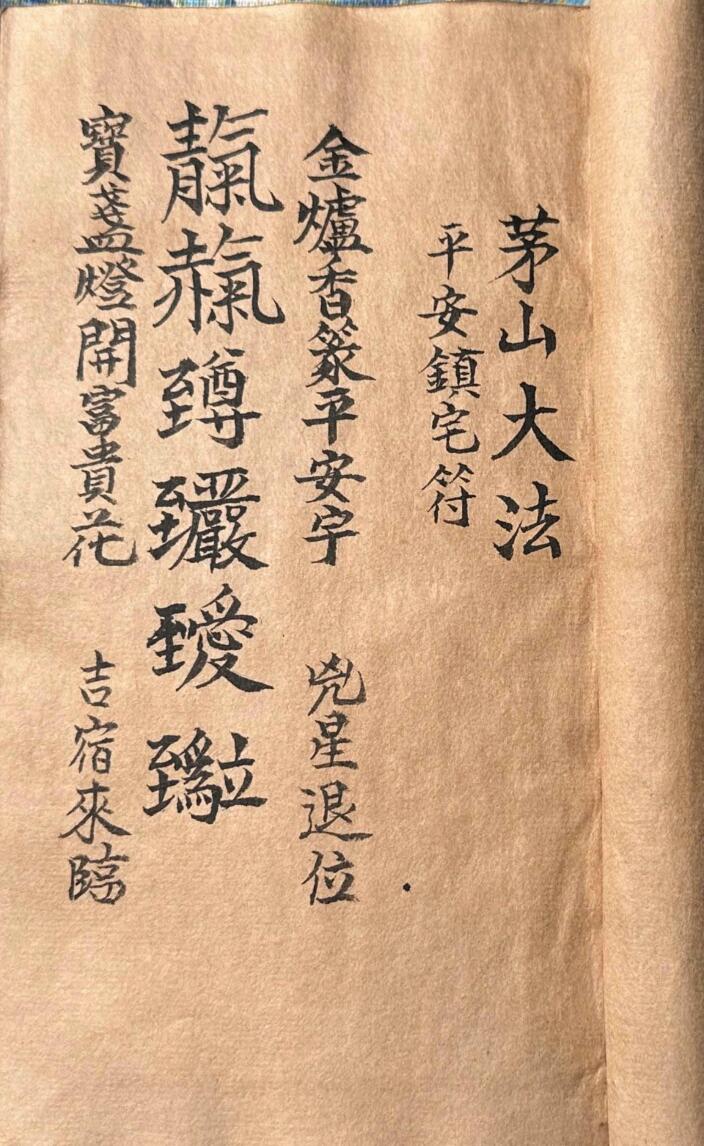 茅山大法
平安鎮宅符
金爐香篆平安宇 兇星退位
靝
寶盞燈開富貴花 吉宿來臨